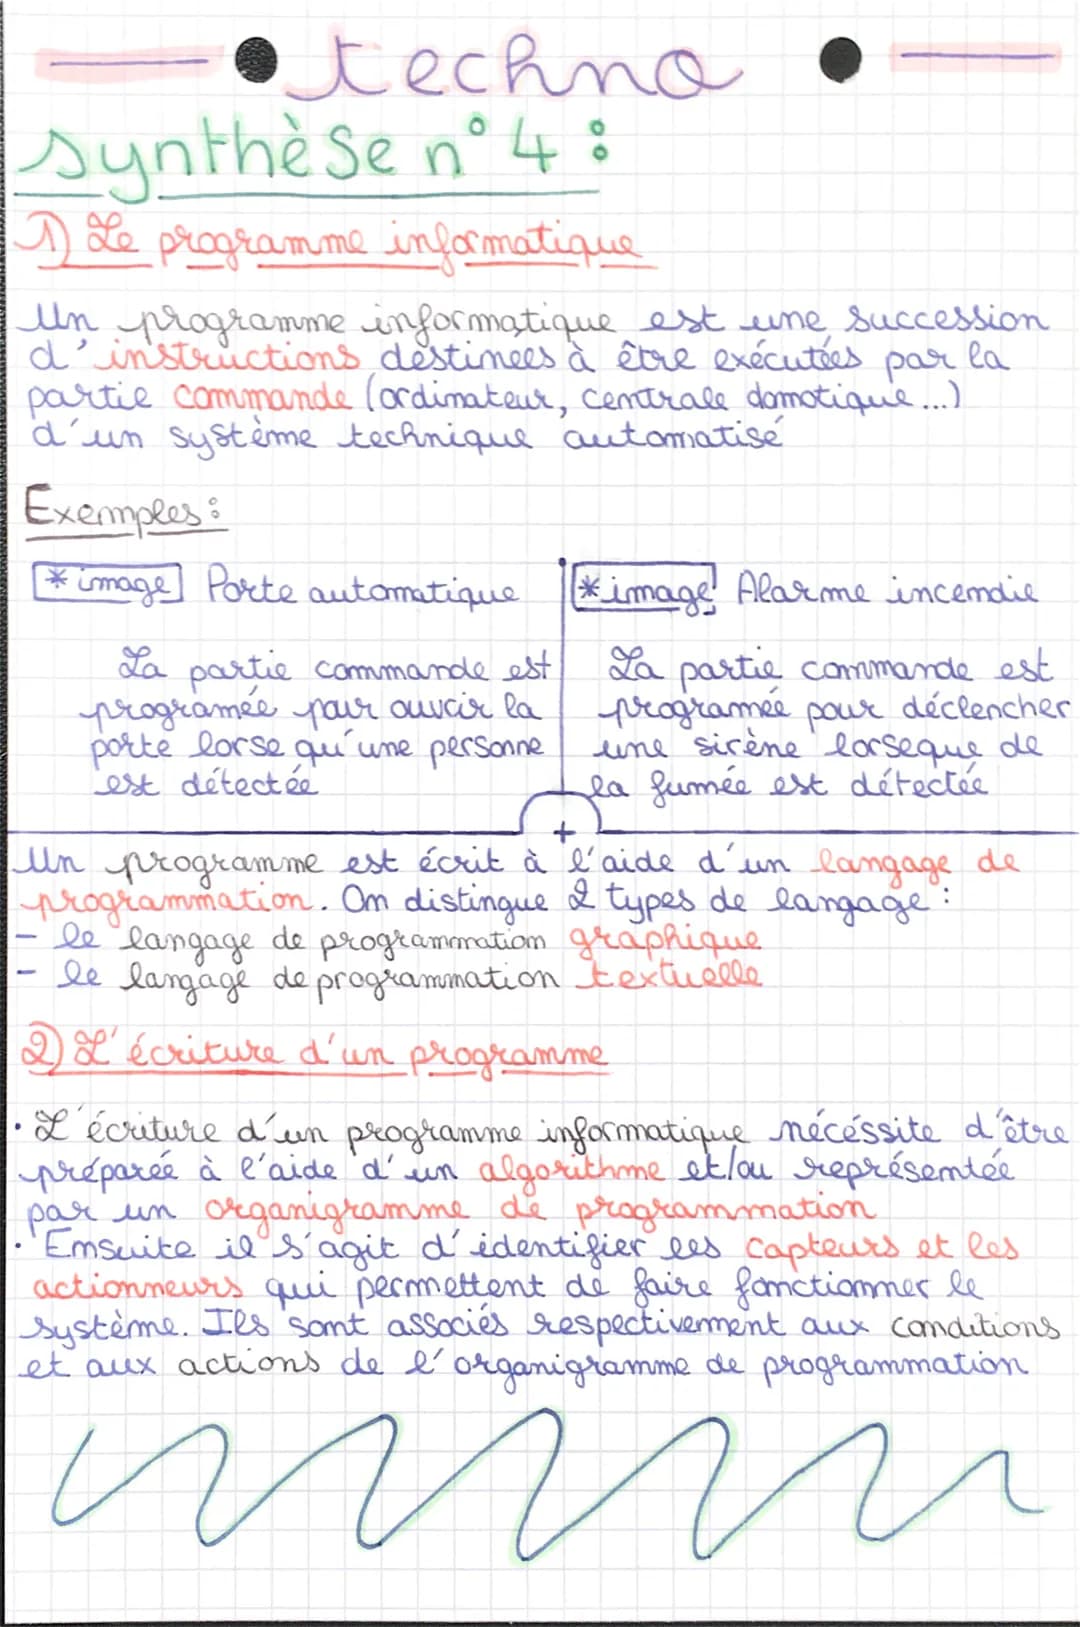 techno
synthèse n° 4 :
1) Le programme informatique
Un programme informatique est une succession
d'instructions destinées à être exécutées par la
partie commande (ordinateur, centrale domotique...)
d'un système technique automatisé
Exemples :
*image Porte automatique
La partie commande est
programée pour ouvrir la
porte lorse qu'une personne
est détectée
*image Alarme incendie
La partie commande est
programée pour déclencher
une sirène lorseque de
la fumée est détectée
+
Un programme est écrit à l'aide d'un langage de
programmation. On distingue 2 types de langage :
- le langage de programmation graphique
- le langage de programmation textuelle
2) L'écriture d'un programme
· L'écriture d'un programme informatique nécéssite d'être
préparée à l'aide d'un algorithme et/ou représentée
par un organigramme de programmation
· Ensuite il s'agit d'identifier les capteurs et les
actionneurs qui permettent de faire fonctionner le
système. Ils sont associés respectivement aux conditions
et aux actions de l'organigramme de programmation